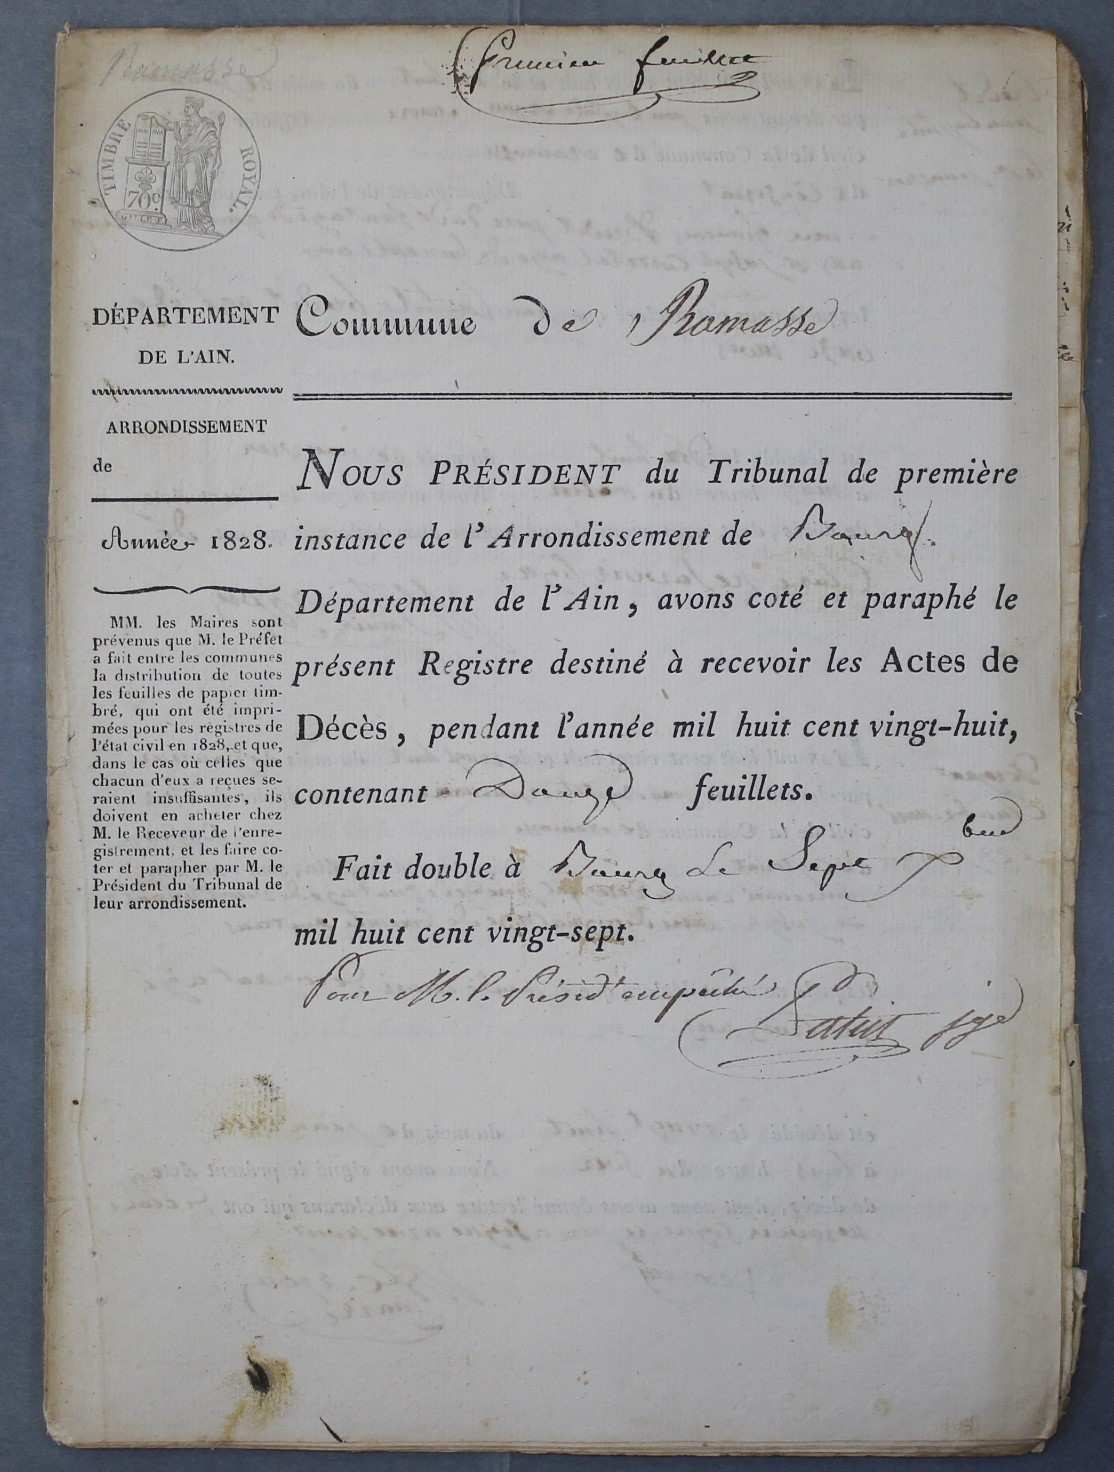 Ramasse
Premier feuillet
TIMBRE ROYAL.
70c
DÉPARTEMENT
DE L'AIN.
ARRONDISSEMENT
de
Année 1828.
MM. les Maires sont
prévenus que M. le Préfet
a fait entre les communes
la distribution de toutes
les feuilles de papier tim-
bré, qui ont été impri-
mées pour les registres de
l'état civil en 1828, et que,
dans le cas où celles que
chacun d'eux a reçues se-
raient insuffisantes, ils
doivent en acheter chez
M. le Receveur de l'enre-
gistrement, et les faire co-
ter et parapher par M. le
Président du Tribunal de
leur arrondissement.
Commune de Ramasse
NOUS PRÉSIDENT du Tribunal de première
instance de l'Arrondissement de Bourg.
Département de l'Ain, avons coté et paraphé le
présent Registre destiné à recevoir les Actes de
Décès, pendant l'année mil huit cent vingt-huit,
contenant Douze feuillets.
Fait double à Bourg Le Sept
mil huit cent vingt-sept.
Pour M. le Présidt empêché
juge